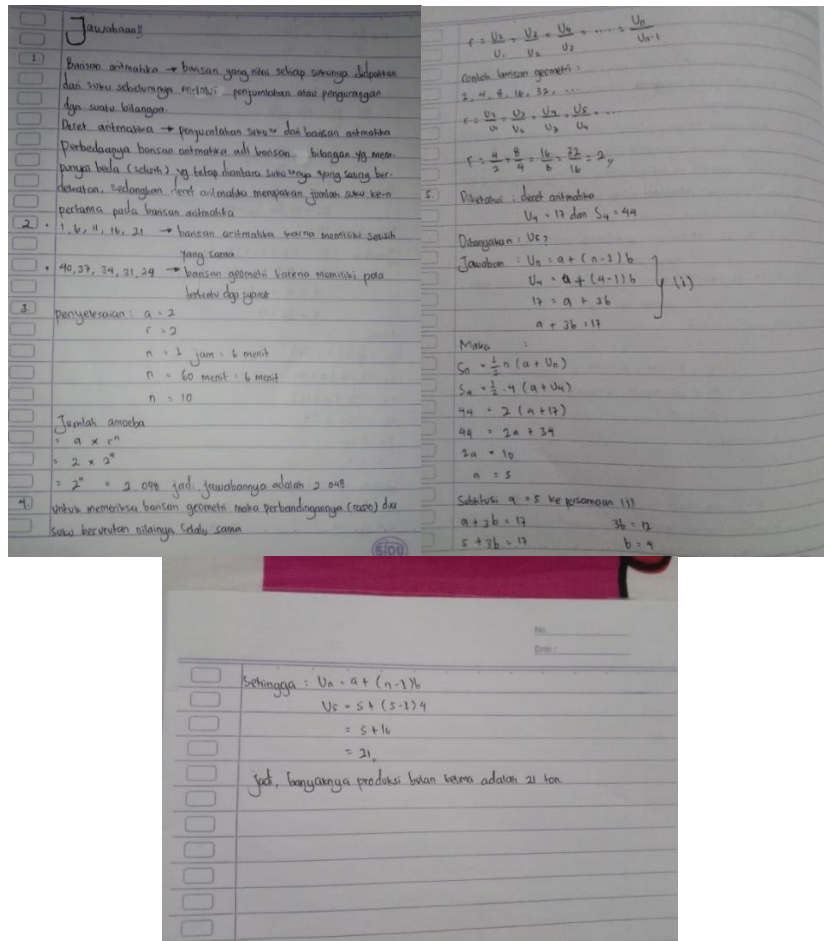 Jawabaan!!
1. Barisan aritmatika → barisan yang nilai setiap sukunya didapatkan
dari suku sebelumnya melalui penjumlahan atau pengurangan
dgn suatu bilangan.
Deret aritmatika → penjumlahan suku" dari barisan aritmatika
Perbedaannya barisan aritmatika adl barisan bilangan yg mem-
punya beda (selisih) yg tetap diantara suku"nya yang saling ber-
dekatan, sedangkan deret aritmatika merupakan jumlah suku ke-n
pertama pada barisan aritmatika
2. • 1, 6, 11, 16, 21 → barisan aritmatika karna memiliki selisih
yang sama
• 40, 37, 34, 31, 29 → barisan geometri karena memiliki pola
tertentu dgn syarat
3. penyelesaian : a = 2
r = 2
n = 1 jam : 6 menit
n = 60 menit : 6 menit
n = 10
Jumlah amoeba
= a x rⁿ
= 2 x 2ⁿ
= 2ⁿ = 2 048 jadi jawabannya adalah 2 048
4. untuk memeriksa barisan geometri maka perbandingannya (rasio) dua
suku berurutan nilainya selalu sama
SIDU
r = U2/U1 = U3/U2 = U4/U3 = ...... = Un/Un-1
Contoh barisan geometri :
2, 4, 8, 16, 32, ...
r = U2/U1 = U3/U2 = U4/U3 = U5/U4 = ...
r = 4/2 = 8/4 = 16/8 = 32/16 = 2,,
5. Diketahui : deret aritmatika
U4 = 17 dan S4 = 44
Ditanyakan : U5?
Jawaban : Un = a + (n-1) b
U4 = a + (4-1) b
17 = a + 3b (1)
a + 3b = 17
Maka :
Sn = 1/2 n (a + Un)
S4 = 1/2 . 4 (a + U4)
44 = 2 (a + 17)
44 = 2a + 34
2a = 10
a = 5
Subtitusi a = 5 ke persamaan (1)
a + 3b = 17 3b = 12
5 + 3b = 17 b = 4
No.
Date :
Sehingga : Un = a + (n-1) b
U5 = 5 + (5-1) 4
= 5 + 16
= 21,,
jadi, banyaknya produksi bulan kelima adalah 21 ton